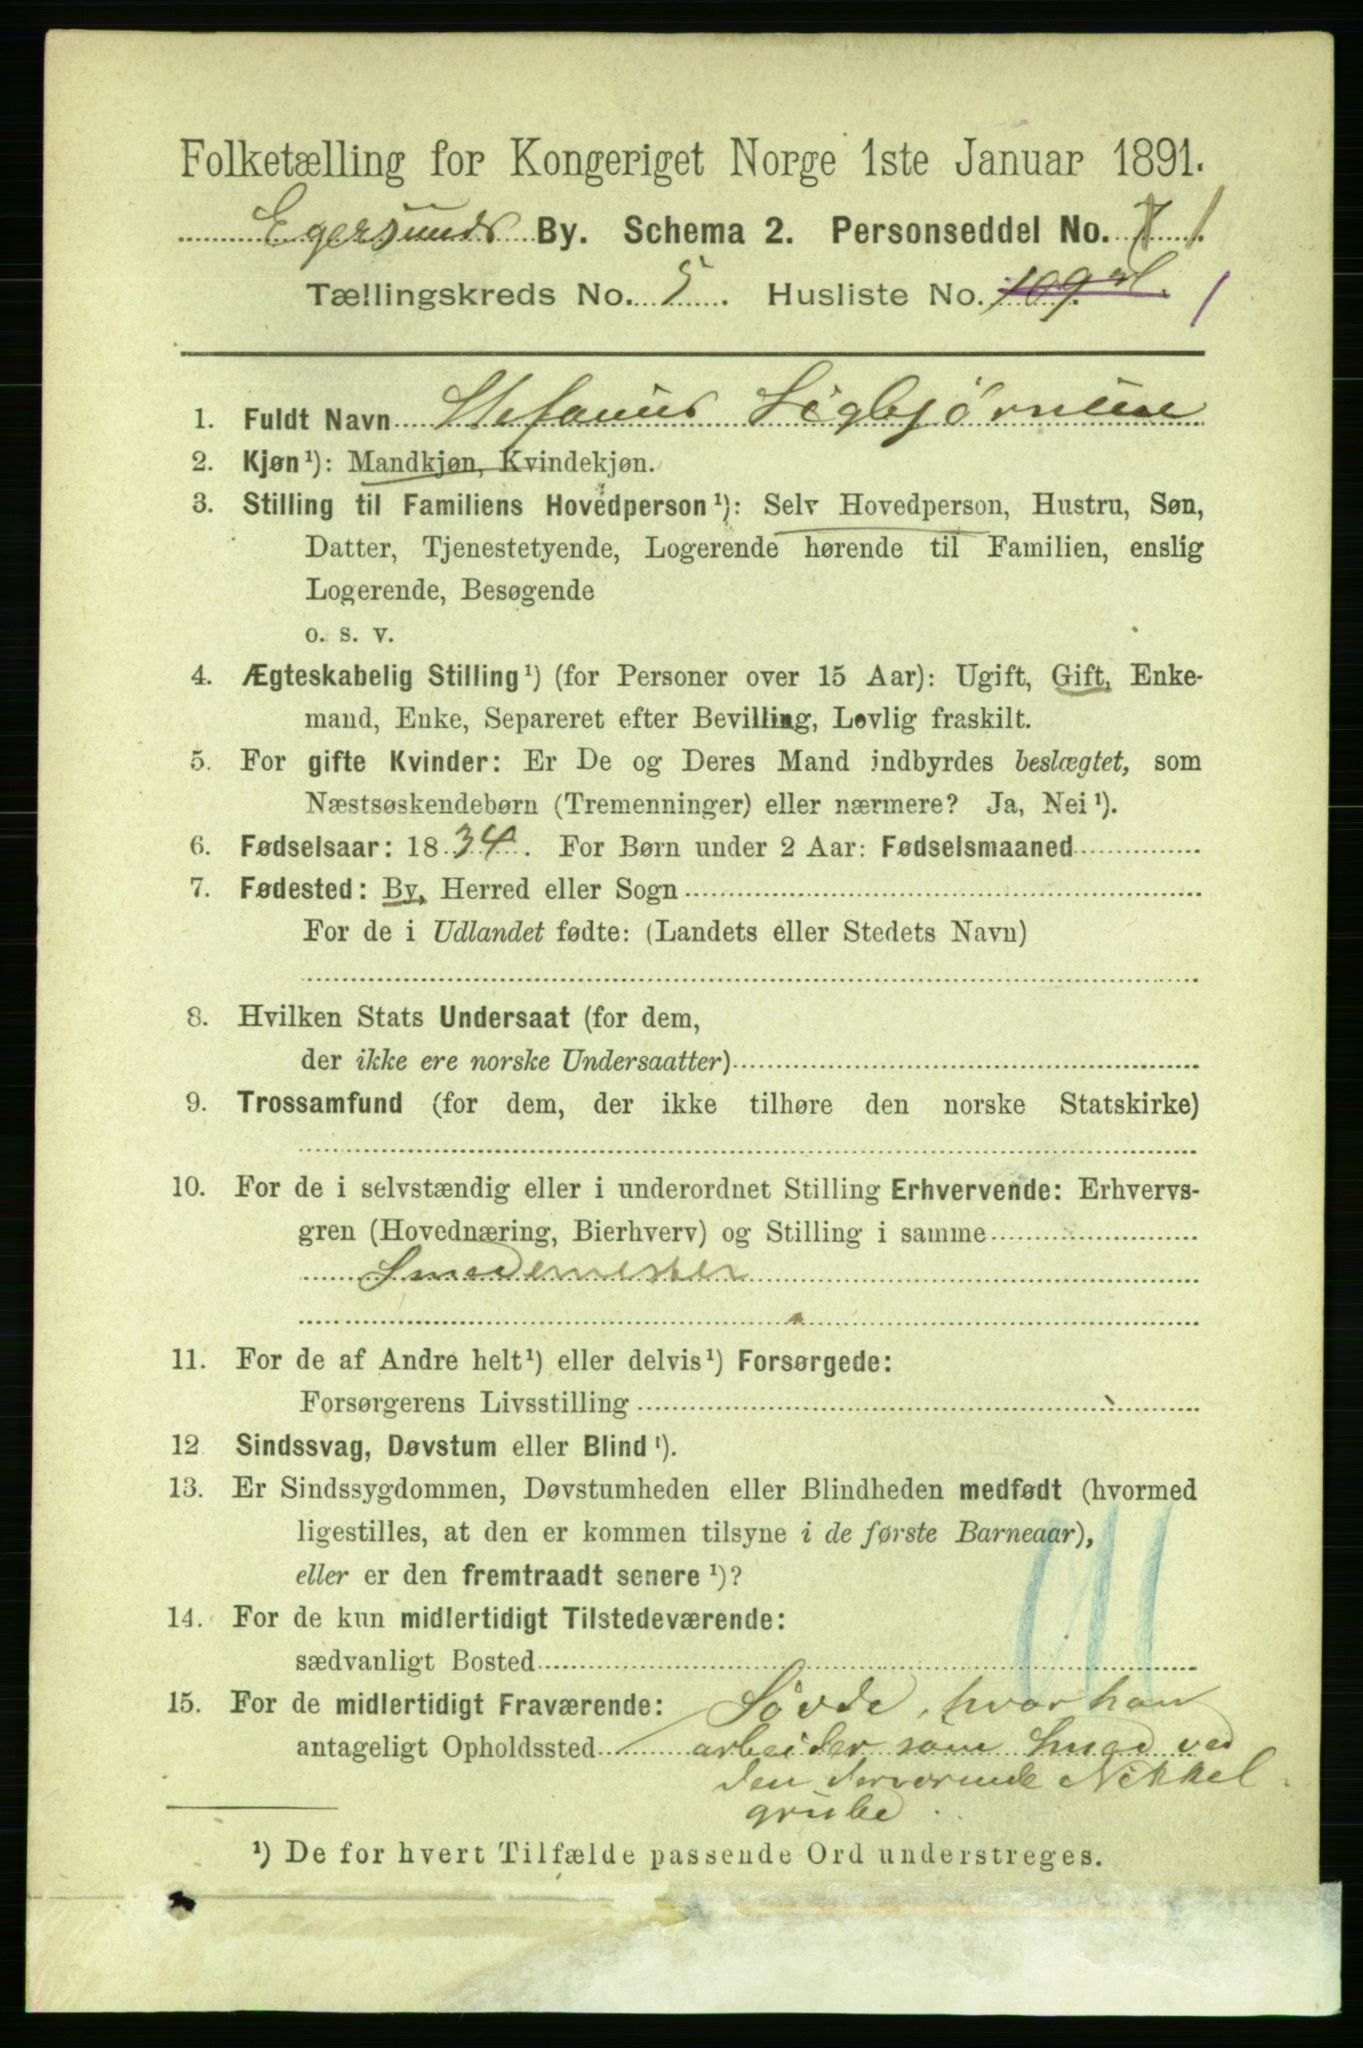 Folketælling for Kongeriget Norge 1ste Januar 1891.
Egersunds By. Schema 2. Personseddel No. 1
Tællingskreds No. 5. Husliste No. 109 1
1. Fuldt Navn Stefanus Sigbjørnsen
2. Kjøn¹): Mandkjøn, Kvindekjøn.
3. Stilling til Familiens Hovedperson¹): Selv Hovedperson, Hustru, Søn,
Datter, Tjenestetyende, Logerende hørende til Familien, enslig
Logerende, Besøgende
o. s. v.
4. Ægteskabelig Stilling¹) (for Personer over 15 Aar): Ugift, Gift, Enke-
mand, Enke, Separeret efter Bevilling, Lovlig fraskilt.
5. For gifte Kvinder: Er De og Deres Mand indbyrdes beslægtet, som
Næstsøskendebørn (Tremenninger) eller nærmere? Ja, Nei¹).
6. Fødselsaar: 1834. For Børn under 2 Aar: Fødselsmaaned
7. Fødested: By, Herred eller Sogn
For de i Udlandet fødte: (Landets eller Stedets Navn)
8. Hvilken Stats Undersaat (for dem,
der ikke ere norske Undersaatter)
9. Trossamfund (for dem, der ikke tilhøre den norske Statskirke)
10. For de i selvstændig eller i underordnet Stilling Erhvervende: Erhvervs-
gren (Hovednæring, Bierhverv) og Stilling i samme
Smedemester
11. For de af Andre helt¹) eller delvis¹) Forsørgede:
Forsørgerens Livsstilling
12 Sindssvag, Døvstum eller Blind¹).
13. Er Sindssygdommen, Døvstumheden eller Blindheden medfødt (hvormed
ligestilles, at den er kommen tilsyne i de første Barneaar),
eller er den fremtraadt senere¹)?
14. For de kun midlertidigt Tilstedeværende:
sædvanligt Bosted
15. For de midlertidigt Fraværende: Sövde, hvor han
antageligt Opholdssted arbeider som Smed ved
den derværende Nikkel
grube
¹) De for hvert Tilfælde passende Ord understreges.